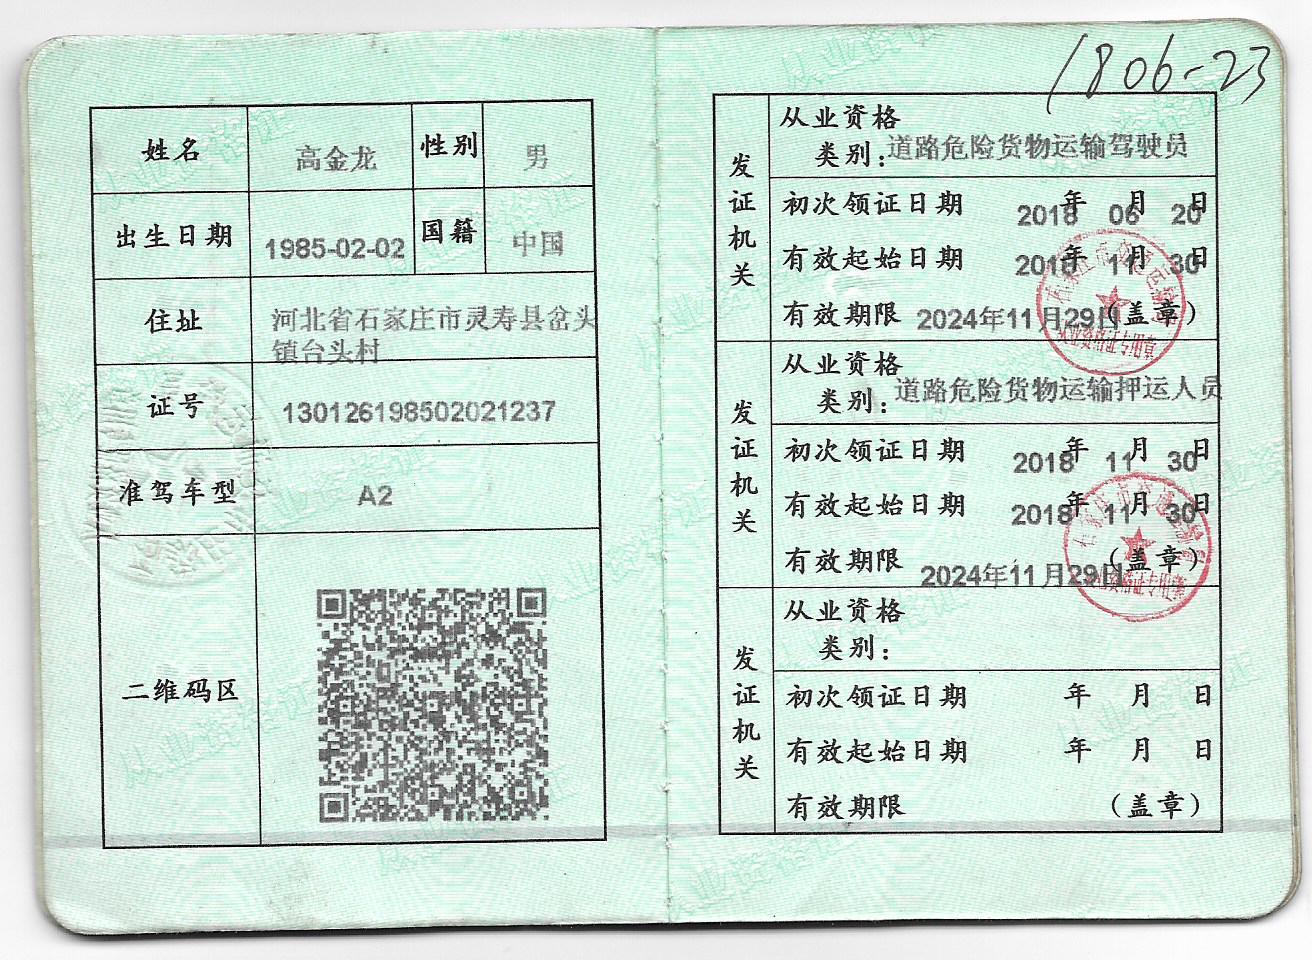 1806-23
姓名 高金龙 性别 男
出生日期 1985-02-02 国籍 中国
住址 河北省石家庄市灵寿县岔头
镇台头村
证号 130126198502021237
准驾车型 A2
二维码区
发证机关
从业资格
类别：道路危险货物运输驾驶员
初次领证日期 2018年06月20日
有效起始日期 2018年11月30日
有效期限 2024年11月29日（盖章）
从业资格证专用章
发证机关
从业资格
类别：道路危险货物运输押运人员
初次领证日期 2018年11月30日
有效起始日期 2018年11月30日
有效期限 2024年11月29日（盖章）
从业资格证专用章
发证机关
从业资格
类别：
初次领证日期 年 月 日
有效起始日期 年 月 日
有效期限 （盖章）